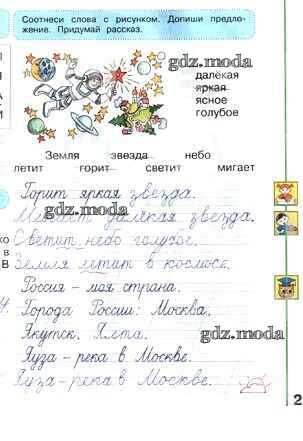 Соотнеси слова с рисунком. Допиши предло-
жение. Придумай рассказ.
gdz.moda
далёкая
яркая
ясное
голубое
Земля звезда небо
летит горит светит мигает
Горит яркая звезда.
gdz.moda
Мигает далёкая звезда.
Светит небо голубое.
Земля летит в космосе.
Россия – моя страна.
Города России: Москва,
gdz.moda
Якутск, Ялта.
Яуза – река в Москве.
Яуза – река в Москве.
2